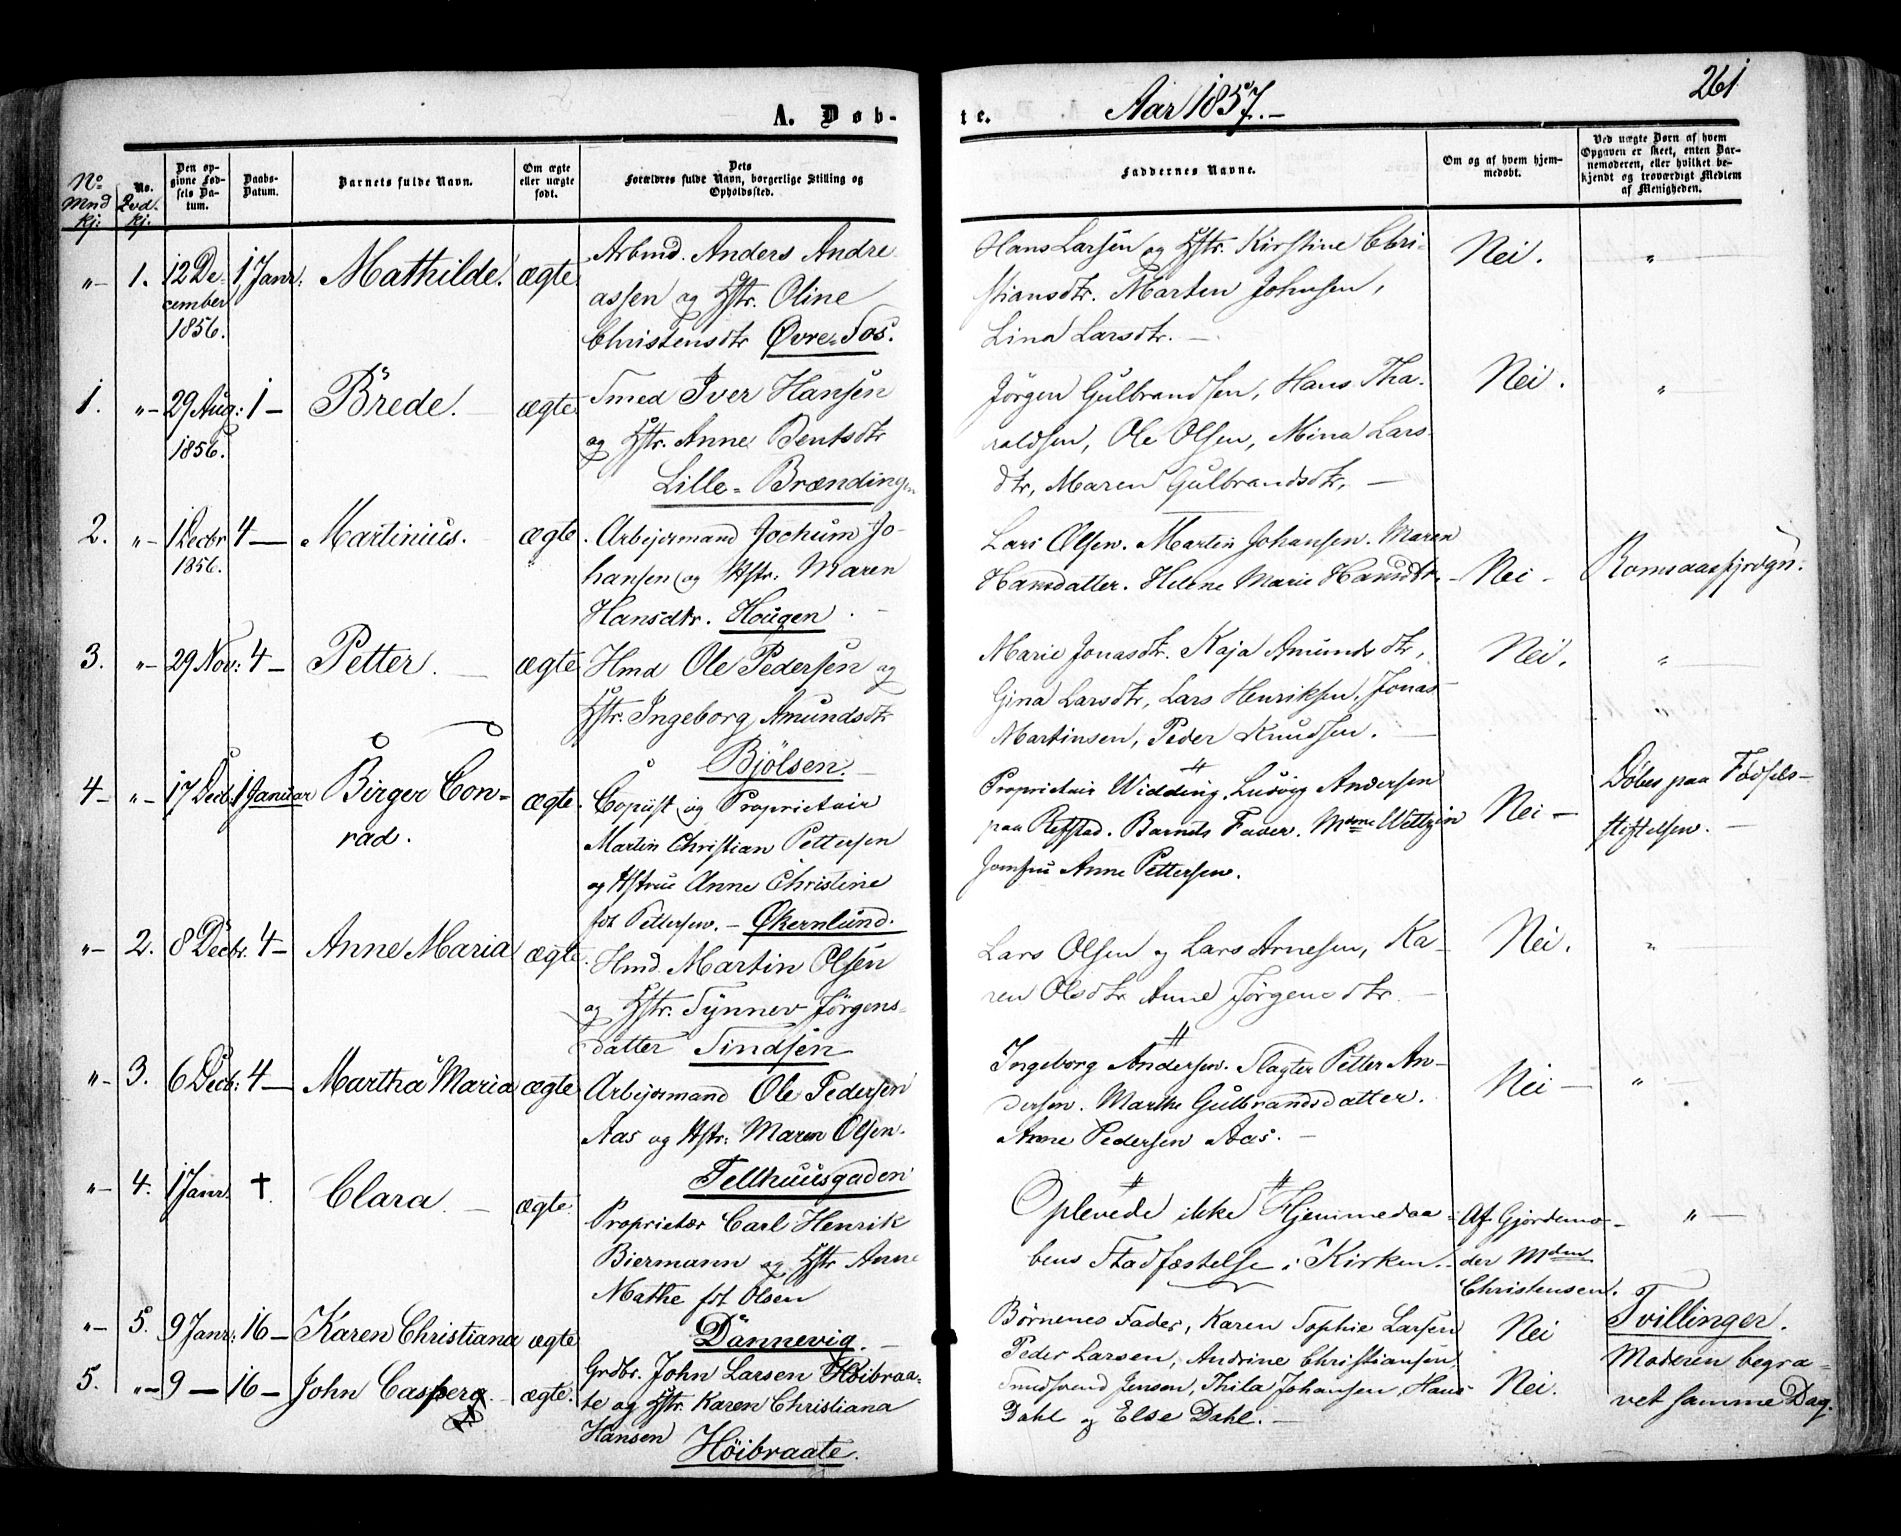 A. Døb-
te.
Aar 1857.-
261
No Mnd kj:
No. Qvd. kj.
Den opgivne Fødsels Datum.
Daabs-Datum.
Barnets fulde Navn.
Om ægte eller uægte født.
Dets Forældres fulde Navn, borgerlige Stilling og Opholdssted.
Faddernes Navne.
Om og af hvem hjemmedøbt.
Ved uægte Børn af hvem Opgaven er skeet, enten Barnemoderen, eller hvilket bekjendt og troværdigt Medlem af Menigheden.
"- 1. 12 De-
cember
1856.
1 Janr: Mathilde. ægte.
Arbmd. Anders Andre-
assen og Hstr. Oline
Christensdtr Øvre-Foss.
Hans Larsen og Hstr. Kirstine Chri-
stiansdtr. Marten Johnsen,
Lina Larsdtr. -
Nei. "
1. "- 29 Aug:
1856.
1 - Brede. - ægte.
Smed Iver Hansen
og Hstr. Anne Bentsdtr
Lille-Brændingen
Jørgen Gulbrandsen, Hans Tha-
raldsen, Ole Olsen, Mina Lars-
dtr, Maren Gulbrandsdtr, -
Nei. "
2. "- 1 Decbr
1856.
4 - Martinius. ægte.
Arbejdsmand Jochum Jo-
hansen og Hstr: Maren
Hansdtr. Hougen. -
Lars Olsen. Martin Johansen. Maren
Hansdatter. Helene Marie Hansdtr. -
Nei -
3. "- 29 Nov: 4 - Petter. - ægte.
Hmd Ole Pedersen og
Hstr. Ingeborg Amundsdtr
Bjølsen. -
Marie Jonasdtr. Kaja Amundsdtr,
Gina Larsdtr, Lars Henriksen, Jonas
Martinsen, Peder Knudsen. -
Nei. "
4 - "- 17 Decb: 1 Januar Birger Con-
rad.
ægte.
Copiist og Proprietair
Martin Christian Pettersen
og Hstrue Anne Christine
fdt Pettersen. - Økernlund.
Proprietair Widding, Ludvig Andersen
paa Refstad. Barnets Fader. Mdme Weltzin
Jomfru Anne Pettersen.
Nei -
Døbes paa Fødsels-
stiftelsen. -
"- 2. 8 Decbr. 4 - Anne Maria ægte.
Hmd. Martin Olsen
og Hstr. Synnev Jørgens-
datter Sindsen
Lars Olsen og Lars Arnesen, Ka-
ren Olsdtr Anne Jørgensdtr. -
Nei. "
"- 3. 6 Decb: 4 - Martha Maria ægte
Arbejdsmand Ole Pedersen
Aas og Hstr: Maren Olsen.
Fellhuusgaden
Ingeborg Andersen. Slagter Petter An-
dersen. Marthe Gulbrandsdatter.
Anne Pedersen Aas. -
Nei - "
"- 4. 1 Janr. † Clara. - ægte.
Proprietær Carl Henrik
Biermann og Hstr Anne
Mathe fdt Olsen
Dannevig. -
Oplevede ikke Hjemmedaa-
bens Stadfæstelse i Kirken.
Af Gjordemo-
der Mdm
Christensen.
" -
"- 5. 9 Janr: 16 - Karen Christiana ægte
5. "- 9 - 16 - John Casper - ægte.
Grdbr. John Larsen Høibraa-
te og Hstr. Karen Christiana
Hansen
Høibraate.
Børnenes Fader, Karen Sophie Larsen
Peder Larsen, Andrine Christiansen
Smedsvend Jensen, Thila Johansen, Hans
Dahl og Else Dahl. -
Nei
Nei.
Tvillinger.
Moderen begra-
vet samme Dag.